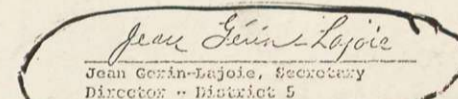 Jean Gérin-Lajoie
Jean Gerin-Lajoie, Secretary
Director - District 5